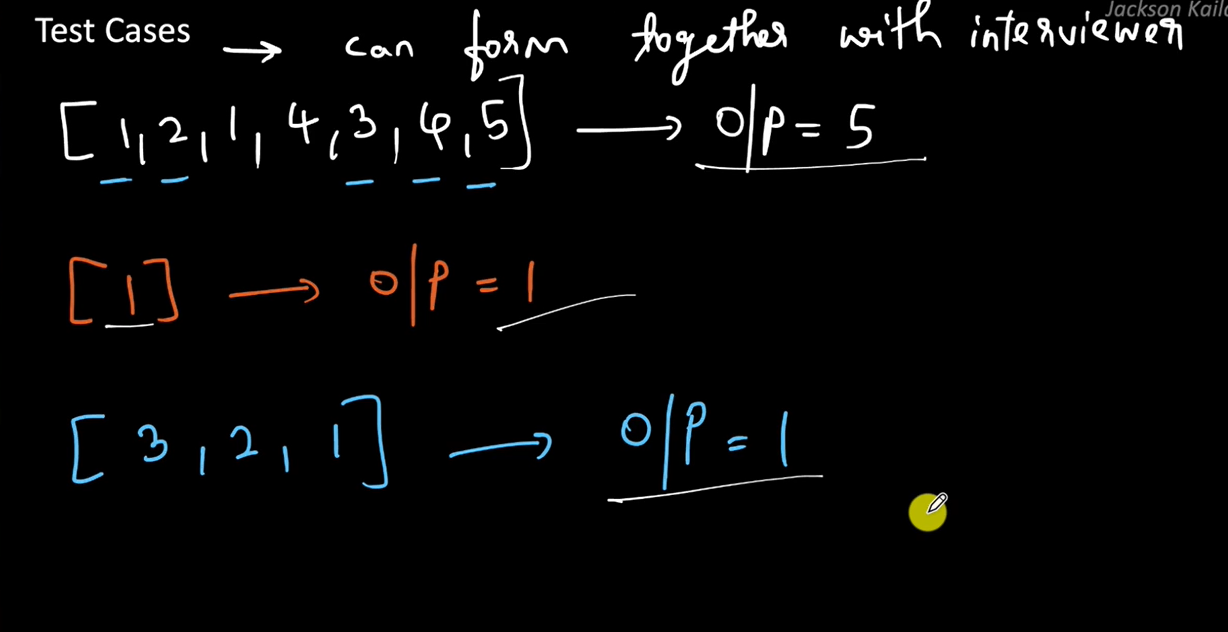 Jackson Kail
Test Cases → can form together with interviewer
[1, 2, 1, 4, 3, 4, 5] → O/P = 5
[1] → O/P = 1
[3, 2, 1] → O/P = 1